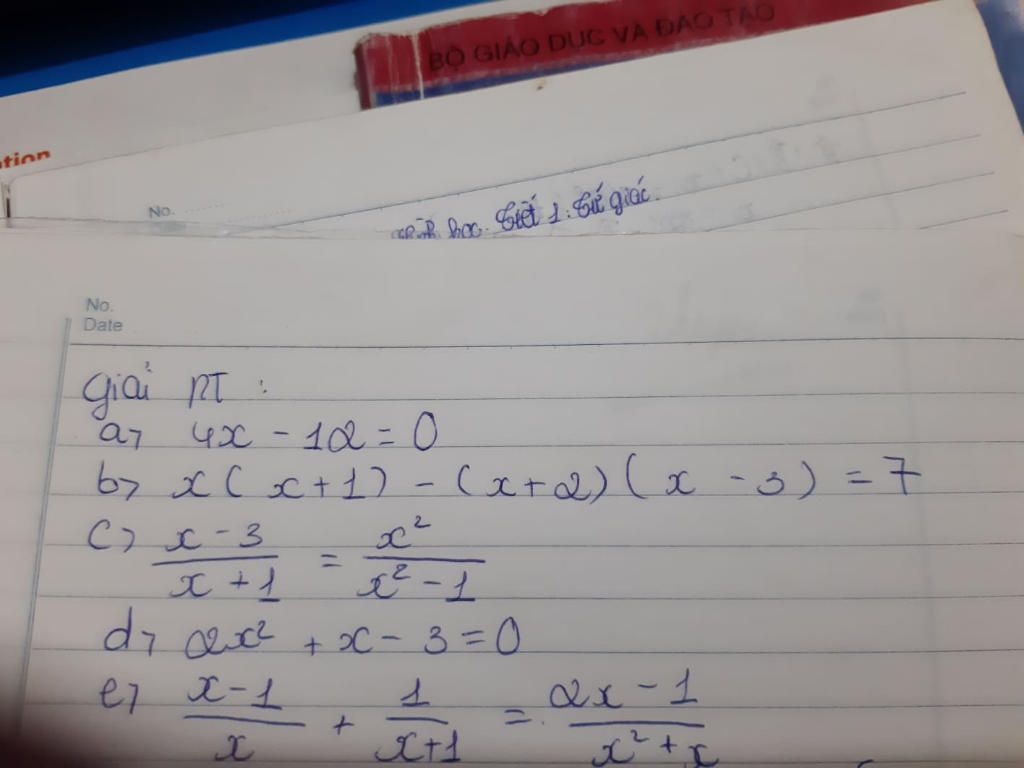 BỘ GIÁO DỤC VÀ ĐÀO TẠO
No.
học. Tiết 1. Tứ giác.
No.
Date
Giải PT :
a, 4x - 12 = 0
b, x( x+1) - (x+2)( x - 3) = 7
c, \frac{x-3}{x+1} = \frac{x^2}{x^2-1}
d, 2x² + x - 3 = 0
e, \frac{x-1}{x} + \frac{1}{x+1} = \frac{2x-1}{x^2+x}